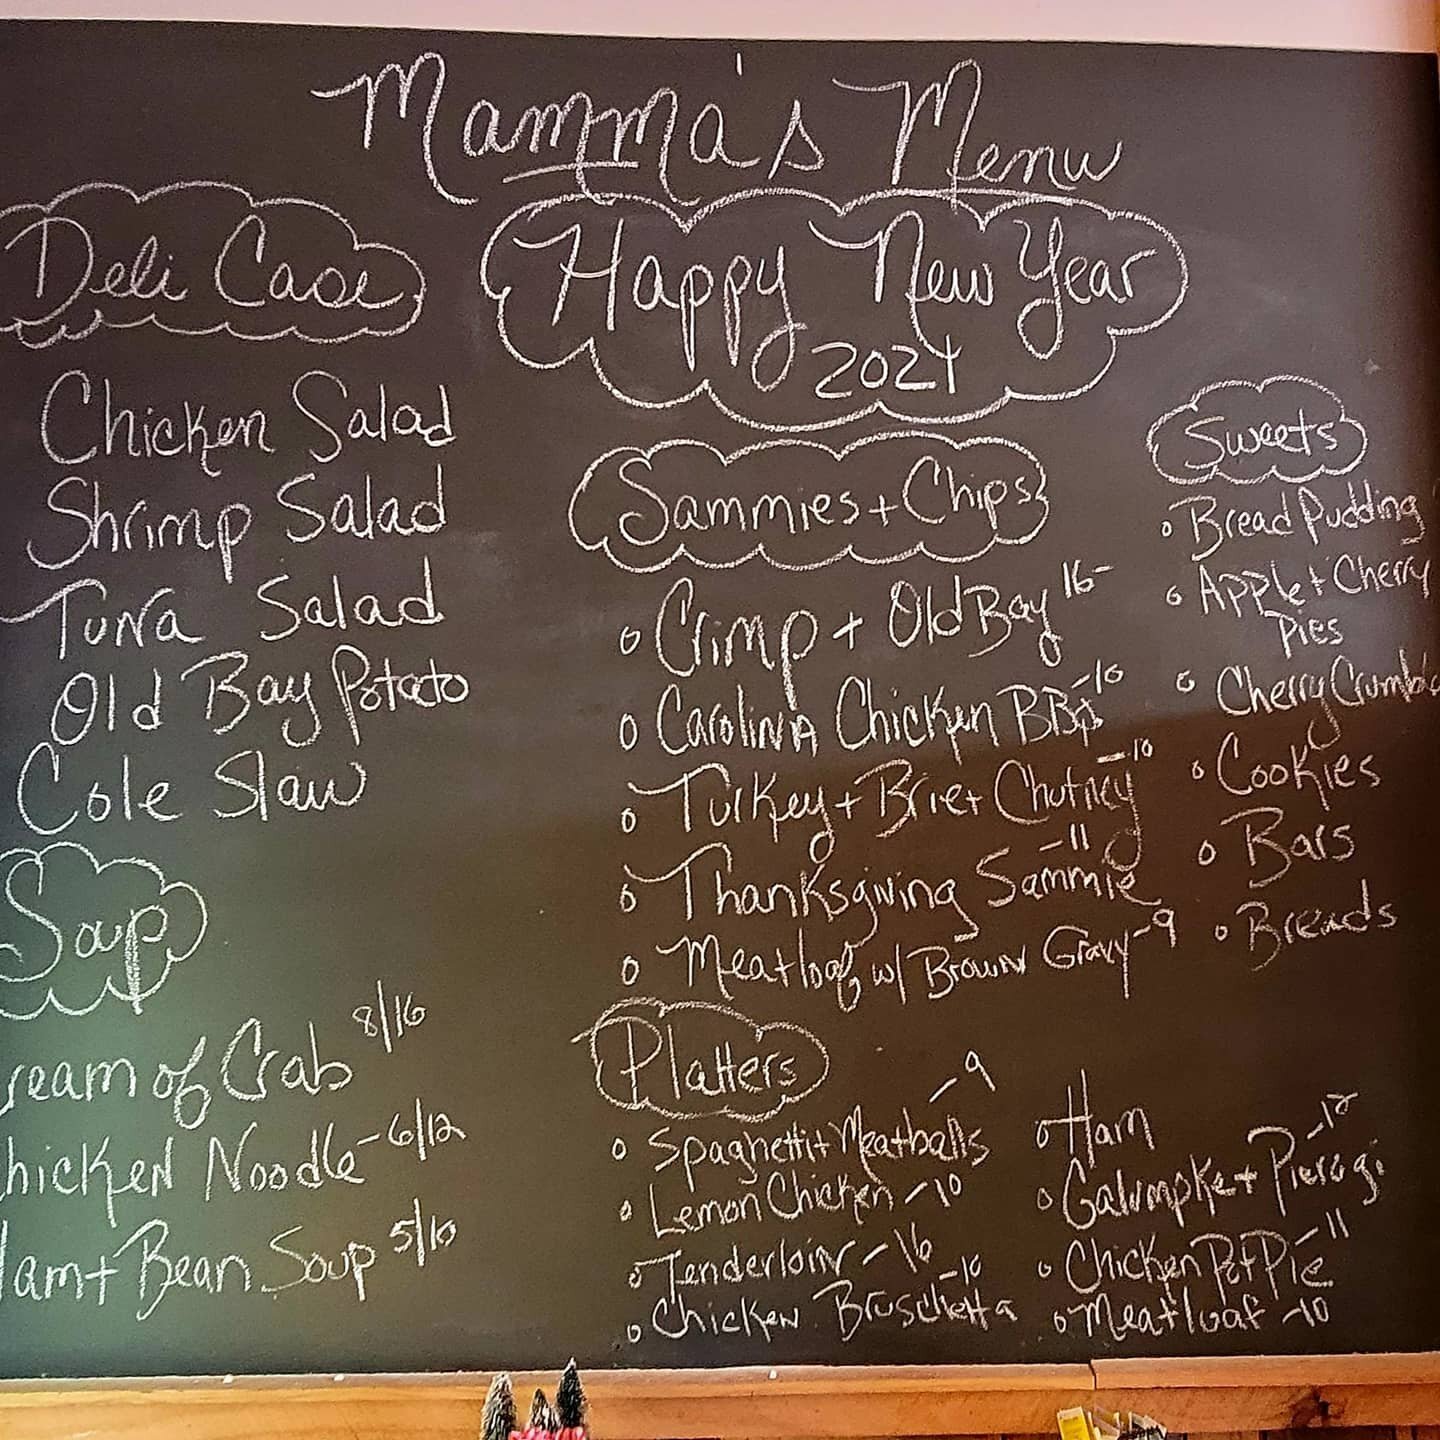 Mamma's Menu
Happy New Year
2021
Deli Case
Chicken Salad
Shrimp Salad
Tuna Salad
Old Bay Potato
Cole Slaw
Soup
ream of Crab 8/16
hicken Noodle - 6/12
Ham + Bean Soup 5/10
Sammies + Chips
Crimp + Old Bay 16-
Carolina Chicken BBQ - 10
Turkey + Brie + Chutney - 10
Thanksgiving Sammie - 11
Meatloaf w/ Brown Gravy - 9
Platters
Spaghetti + Meatballs - 9
Lemon Chicken - 10
Tenderloin - 16
Chicken Bruschetta - 10
Ham
Galumpke + Pierogi - 12
Chicken Pot Pie - 11
Meatloaf - 10
Sweets
Bread Pudding
Apple + Cherry
Pies
Cherry Crumble
Cookies
Bars
Breads